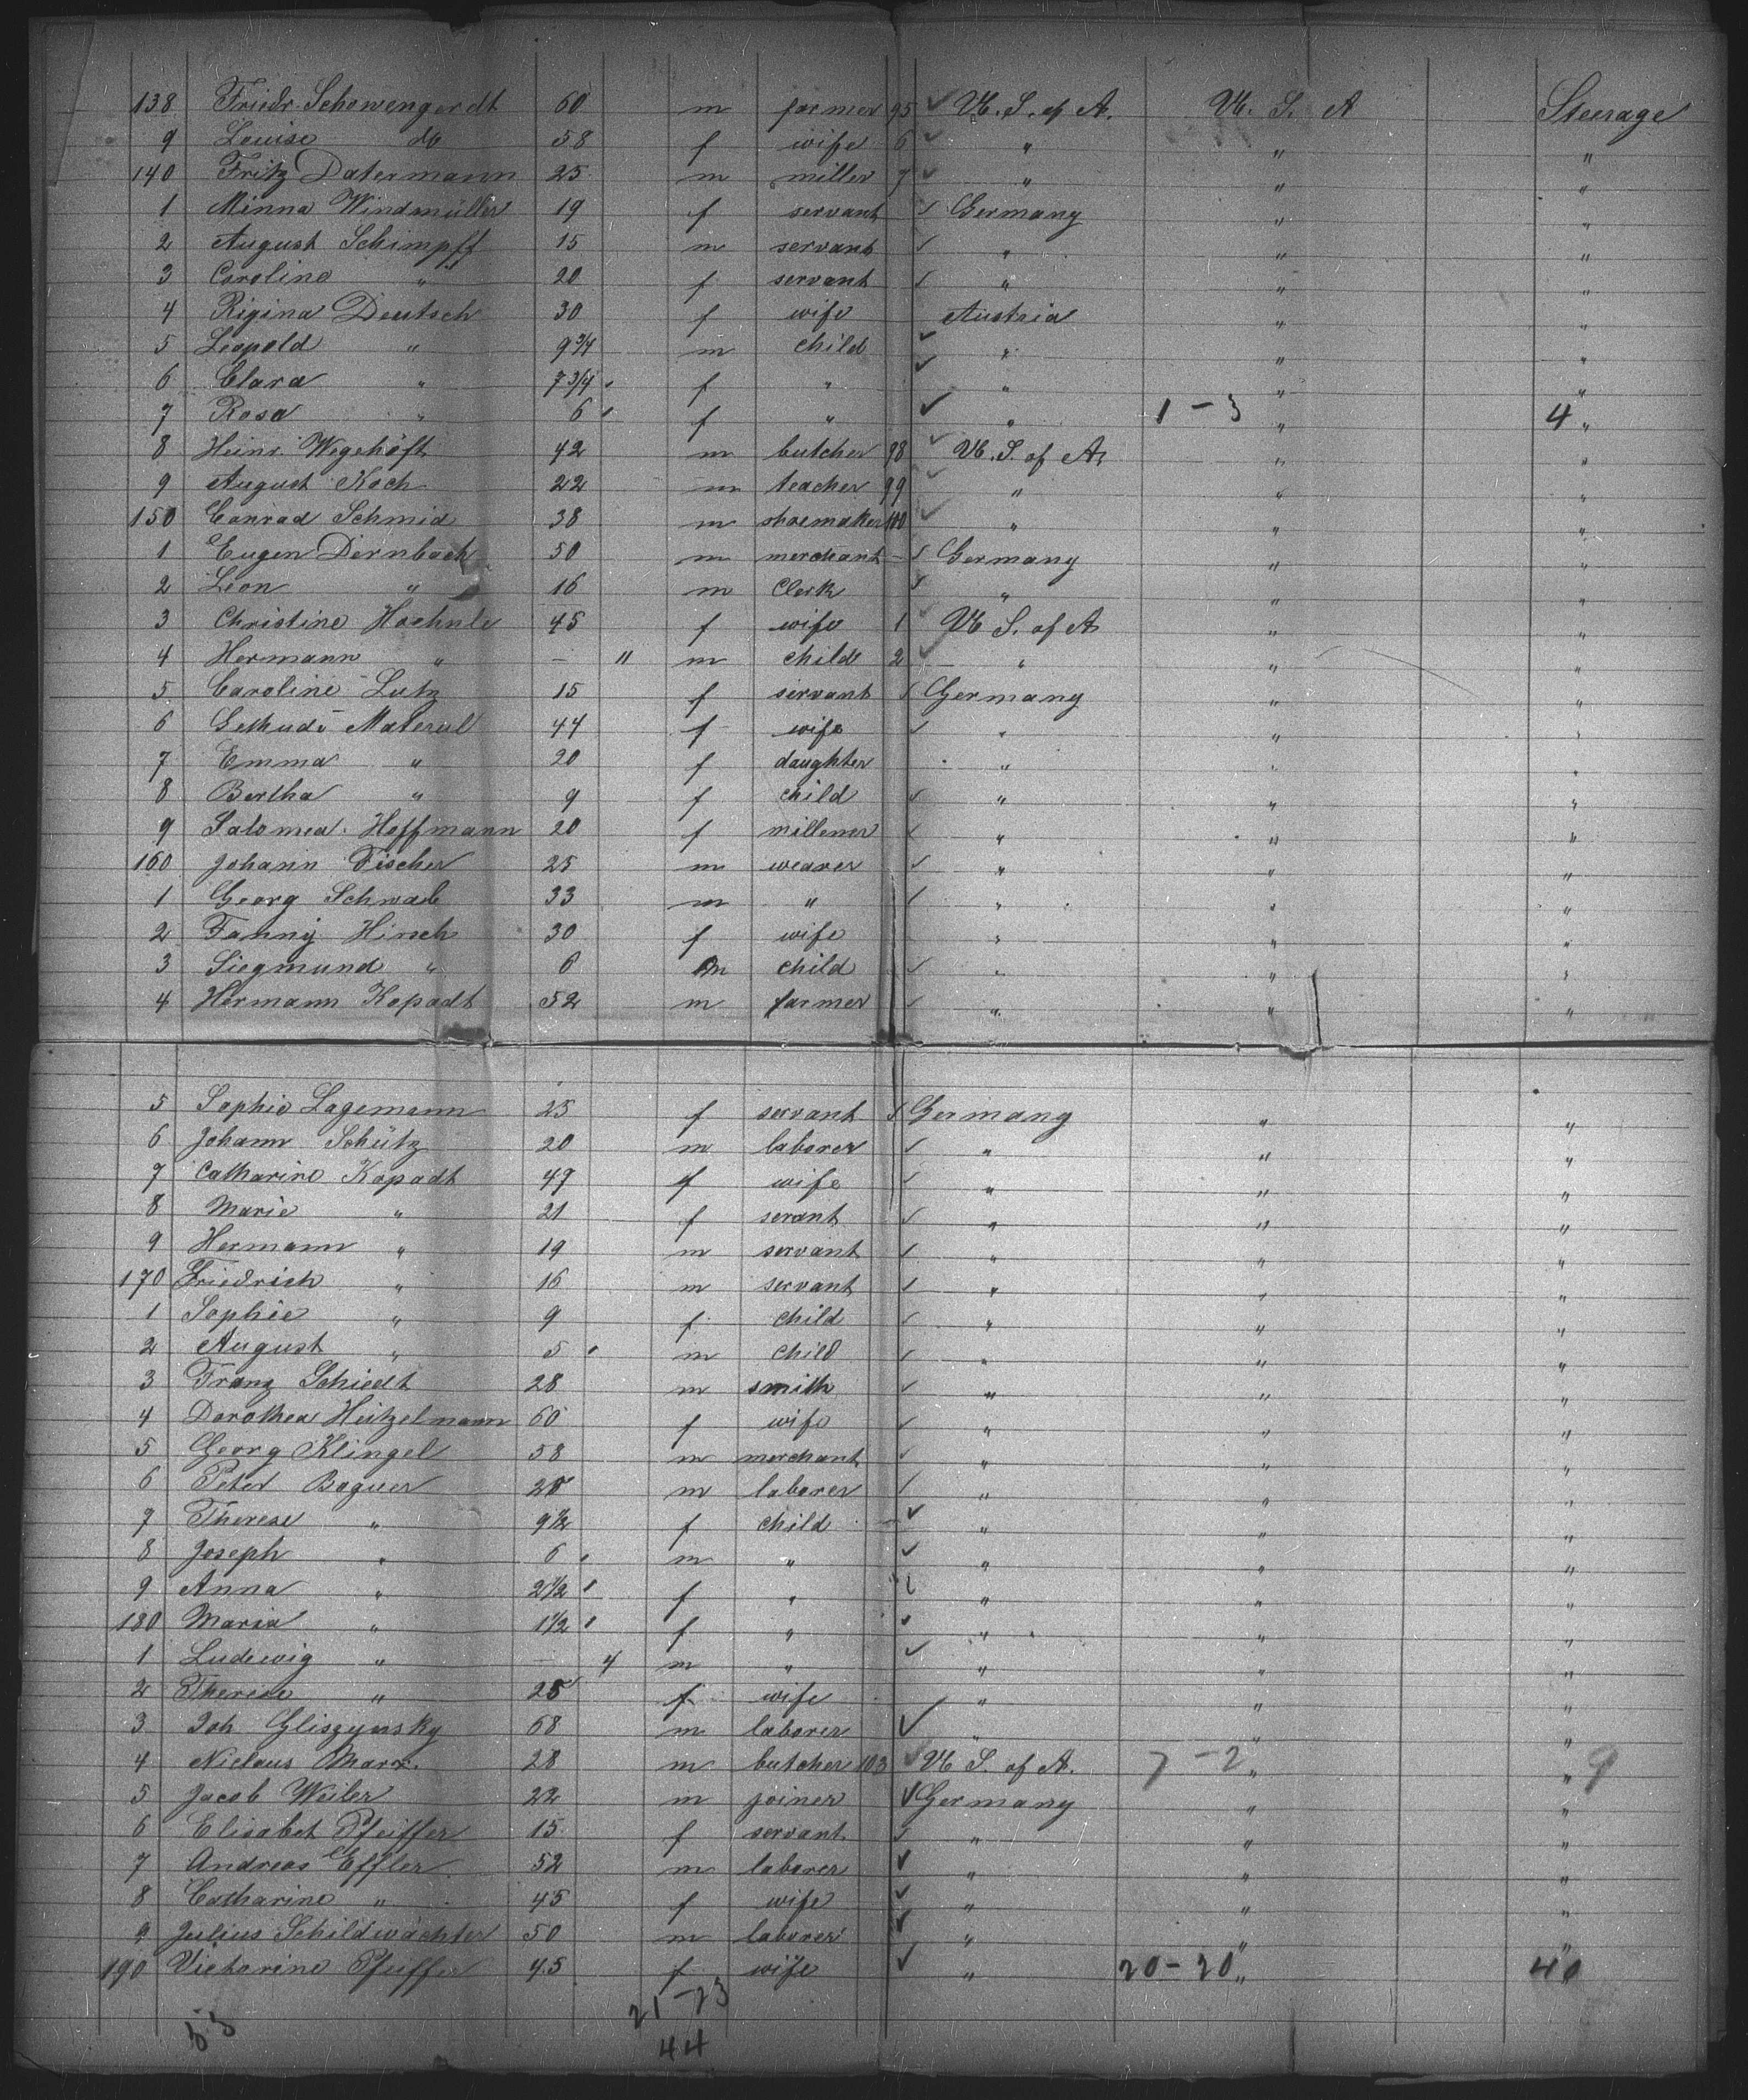 138 Friedr. Schowengerdt 60 m farmer 95 ✓ U. S. of A. U. S. A Steerage
9 Louise do 58 f wife 6 ✓ " " "
140 Fritz Datermann 25 m miller 7 ✓ " " "
1 Minna Windmüller 19 f servant ✓ Germany " "
2 August Schimpff 15 m servant ✓ " " "
3 Caroline " 20 f servant ✓ " " "
4 Rigina Deutsch 30 f wife Austria " "
5 Leopold " 9 3/4 m child ✓ " " "
6 Clara " 7 3/4 f " ✓ " " "
7 Rosa " 6 f " ✓ " 1 - 3 " 4 "
8 Heinr. Wegehöft 42 m butcher 98 ✓ U. S. of A. " "
9 August Koch 22 m teacher 99 ✓ " " "
150 Conrad Schmid 38 m shoemaker 100 ✓ " " "
1 Eugen Dernbach 50 m merchant - ✓ Germany " "
2 Leon " 16 m Clerk ✓ " " "
3 Christine Hoehnle 45 f wife 1 ✓ U S. of A " "
4 Hermann " - 11 m child 2 ✓ " " "
5 Caroline Lutz 15 f servant ✓ Germany " "
6 Materul 44 f wife ✓ " " "
7 Emma " 20 f daughter " " "
8 Bertha " 9 f child ✓ " " "
9 Salomea Hoffmann 20 f millener ✓ " " "
160 Johann Fischer 25 m weaver ✓ " " "
1 Georg Schwab 33 m " ✓ " " "
2 Fanny Hirsch 30 f wife " " "
3 Siegmund " 6 m child ✓ " " "
4 Hermann Kopadt 52 m farmer ✓ " " "
5 Sophie Lagemann 25 f servant ✓ Germany " "
6 Johann Schütz 20 m laborer ✓ " " "
7 Catharine Kopadt 47 f wife ✓ " " "
8 Marie " 21 f serant ✓ " " "
9 Hermann " 19 m servant ✓ " " "
170 Friedrich " 16 m servant ✓ " " "
1 Sophie " 9 f child ✓ " " "
2 August " 5 m child ✓ " " "
3 Franz Schiedt 28 m smith ✓ " " "
4 Dorothea Heitzelmann 60 f wife ✓ " " "
5 Georg Klingel 58 m merchant ✓ " " "
6 Peter Boguer 28 m laborer ✓ " " "
7 Therese " 9 1/2 f child ✓ " " "
8 Joseph " 6 m " ✓ " " "
9 Anna " 2 1/2 f " ✓ " " "
180 Maria " 1 1/2 f " ✓ " " "
1 Ludewig " - 4 m " ✓ " " "
2 Therese " 28 f wife " " "
3 Joh Gliszynsky 68 m laborer ✓ " " "
4 Niclaus Marx. 28 m butcher 103 ✓ U S. of A. 7 - 2 " " 9
5 Jacob Weiler 22 m joiner ✓ Germany " "
6 Elisabet Pfeiffer 15 f servant ✓ " " "
7 Andreas Effler 52 m laborer ✓ " " "
8 Catharine " 45 f wife ✓ " " "
9 Julius Schildwächter 50 m laborer ✓ " " "
190 Victorine Pfeiffer 45 f wife ✓ " 20 - 20 " 40
53 21 - 23
44